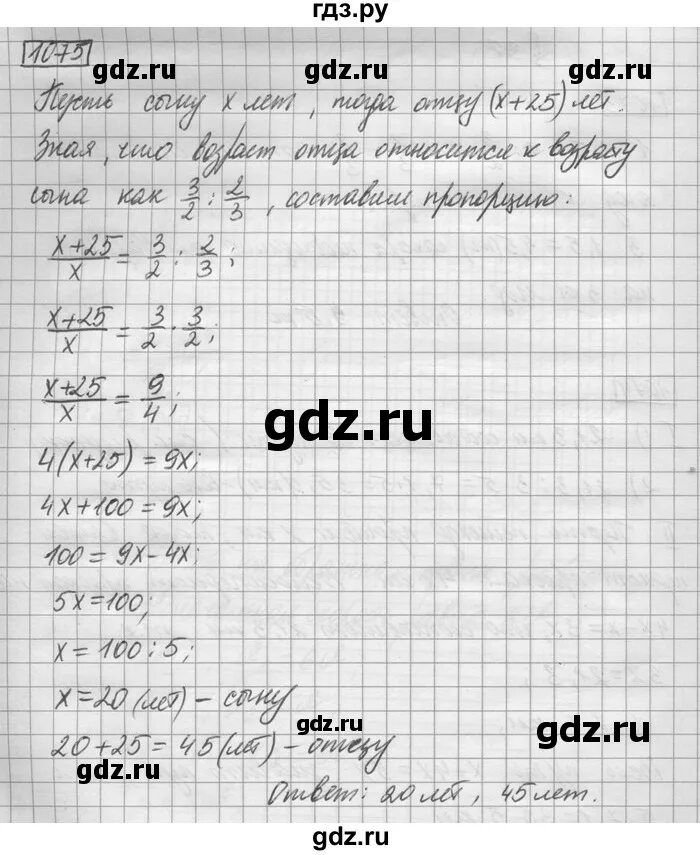 гдз.ру
1075
gdz.ru gdz.ru
Пусть сыну x лет, тогда отцу (x+25) лет.
Зная, что возраст отца относится к возрасту
сына как 3/2 : 2/3, составим пропорцию:
gdz.ru gdz.ru
(x+25)/x = 3/2 : 2/3;
(x+25)/x = 3/2 · 3/2;
gdz.ru gdz.ru
(x+25)/x = 9/4;
gdz.ru
4(x+25) = 9x;
4x+100 = 9x;
gdz.ru gdz.ru
100 = 9x-4x;
5x=100;
x = 100:5;
gdz.ru gdz.ru
x=20 (лет) - сыну
gdz.ru
20+25=45 (лет) - отцу
gdz.ru
Ответ: 20 лет, 45 лет.
gdz.ru